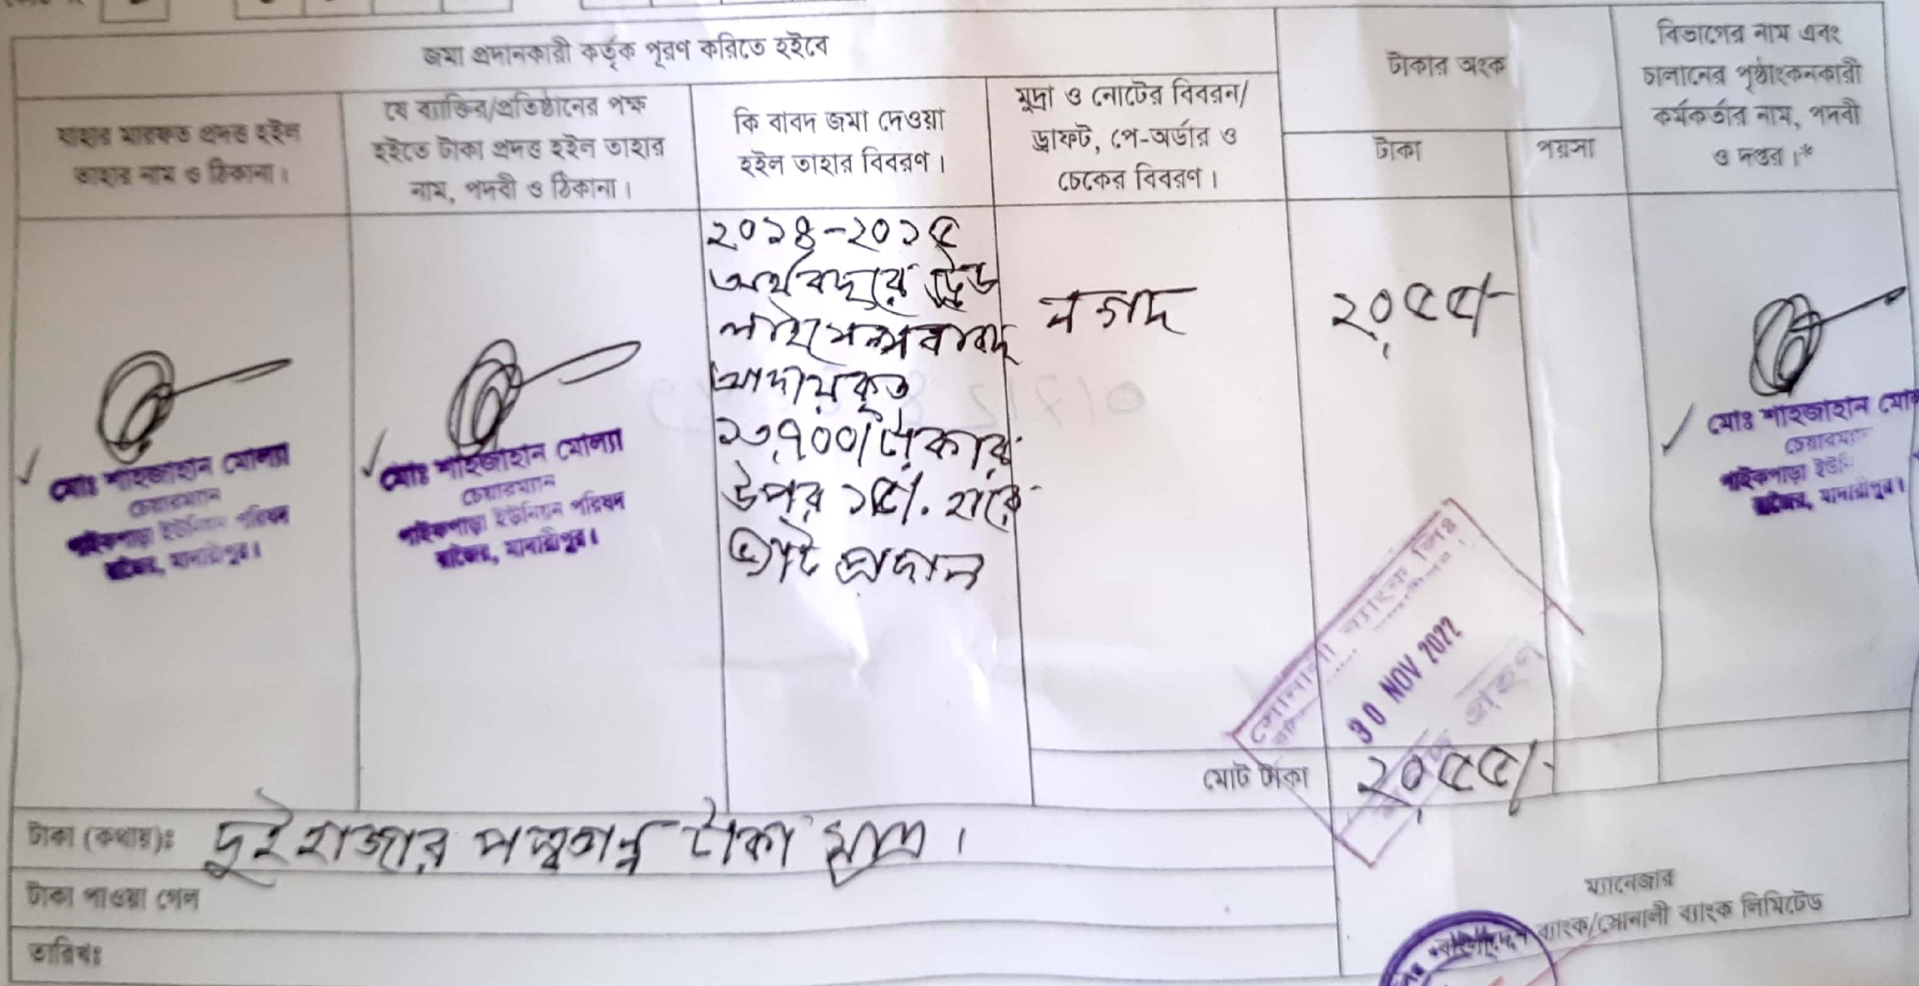 জমা প্রদানকারী কর্তৃক পূরণ করিতে হইবে
টাকার অংক
বিভাগের নাম এবং
চালানের পৃষ্ঠাংকনকারী
কর্মকর্তার নাম, পদবী
ও দপ্তর।*
যাহার মারফত প্রদত্ত হইল
তাহার নাম ও ঠিকানা।
যে ব্যাক্তির/প্রতিষ্ঠানের পক্ষ
হইতে টাকা প্রদত্ত হইল তাহার
নাম, পদবী ও ঠিকানা।
কি বাবদ জমা দেওয়া
হইল তাহার বিবরণ।
মুদ্রা ও নোটের বিবরন/
ড্রাফট, পে-অর্ডার ও
চেকের বিবরণ।
টাকা
পয়সা
মোঃ শাহজাহান মোল্যা
চেয়ারম্যান
পাইকপাড়া ইউনিয়ন পরিষদ
রাজৈর, মাদারীপুর।
মোঃ শাহজাহান মোল্যা
চেয়ারম্যান
পাইকপাড়া ইউনিয়ন পরিষদ
রাজৈর, মাদারীপুর।
২০১৪-২০১৫
অর্থবছরে ট্রেড
লাইসেন্স বাবদ
আদায়কৃত
১৩,৭০০/ টাকার
উপর ১৫%. হারে
ভ্যাট প্রদান
নগদ
২,০৫৫/-
মোঃ শাহজাহান মোল
চেয়ারম্যান
পাইকপাড়া ইউনি
রাজৈর, মাদারীপুর।
সোনালী ব্যাংক লিঃ
30 NOV 2022
গ্রহণ
মোট টাকা
২,০৫৫/-
টাকা (কথায়)ঃ দুই হাজার পঞ্চান্ন টাকা মাত্র।
টাকা পাওয়া গেল
তারিখঃ
ম্যানেজার
বাংলাদেশ ব্যাংক/সোনালী ব্যাংক লিমিটেড